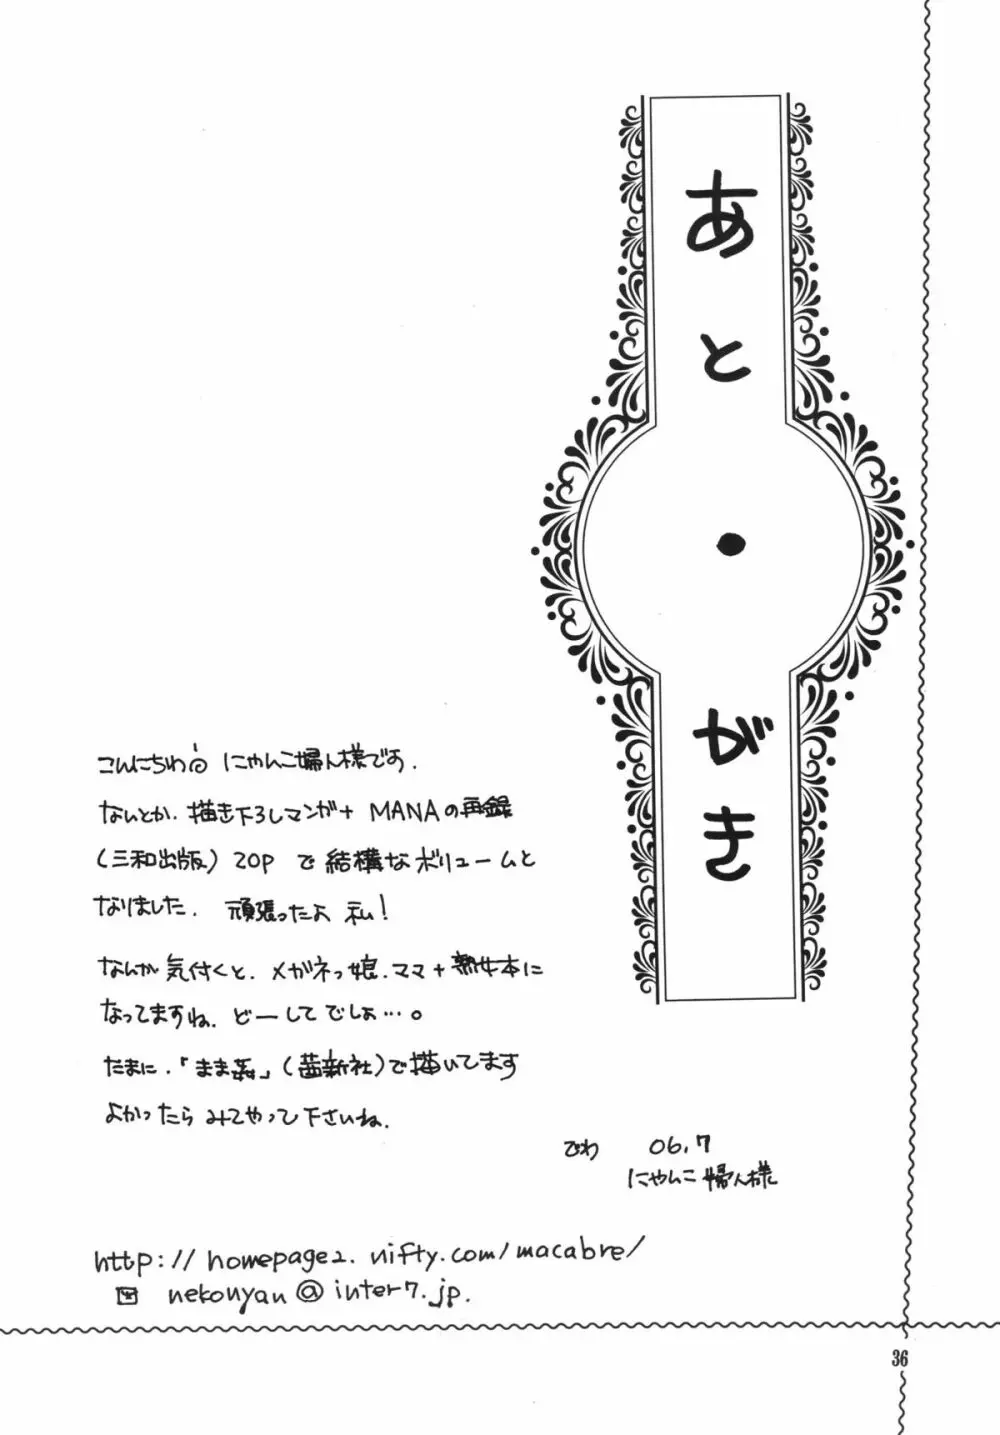 あとがき
こんにちわ にゃんこ婦人様です.
ないとか. 描き下ろしマンガ+ MANAの再録
(三和出版) 20P で結構なボリュームと
なりました. 頑張ったよ 私!
なんか 気付くと. メガネっ娘. ママ+熟女本に
なってますね. どーしてでしょ…。
たまに.「まま姦」(茜新社)で描いてます
よかったら みてやって下さいね.
でわ 06.7
にゃんこ婦人様
http://homepage2.nifty.com/macabre/
nekonyan@inter7.jp.
36